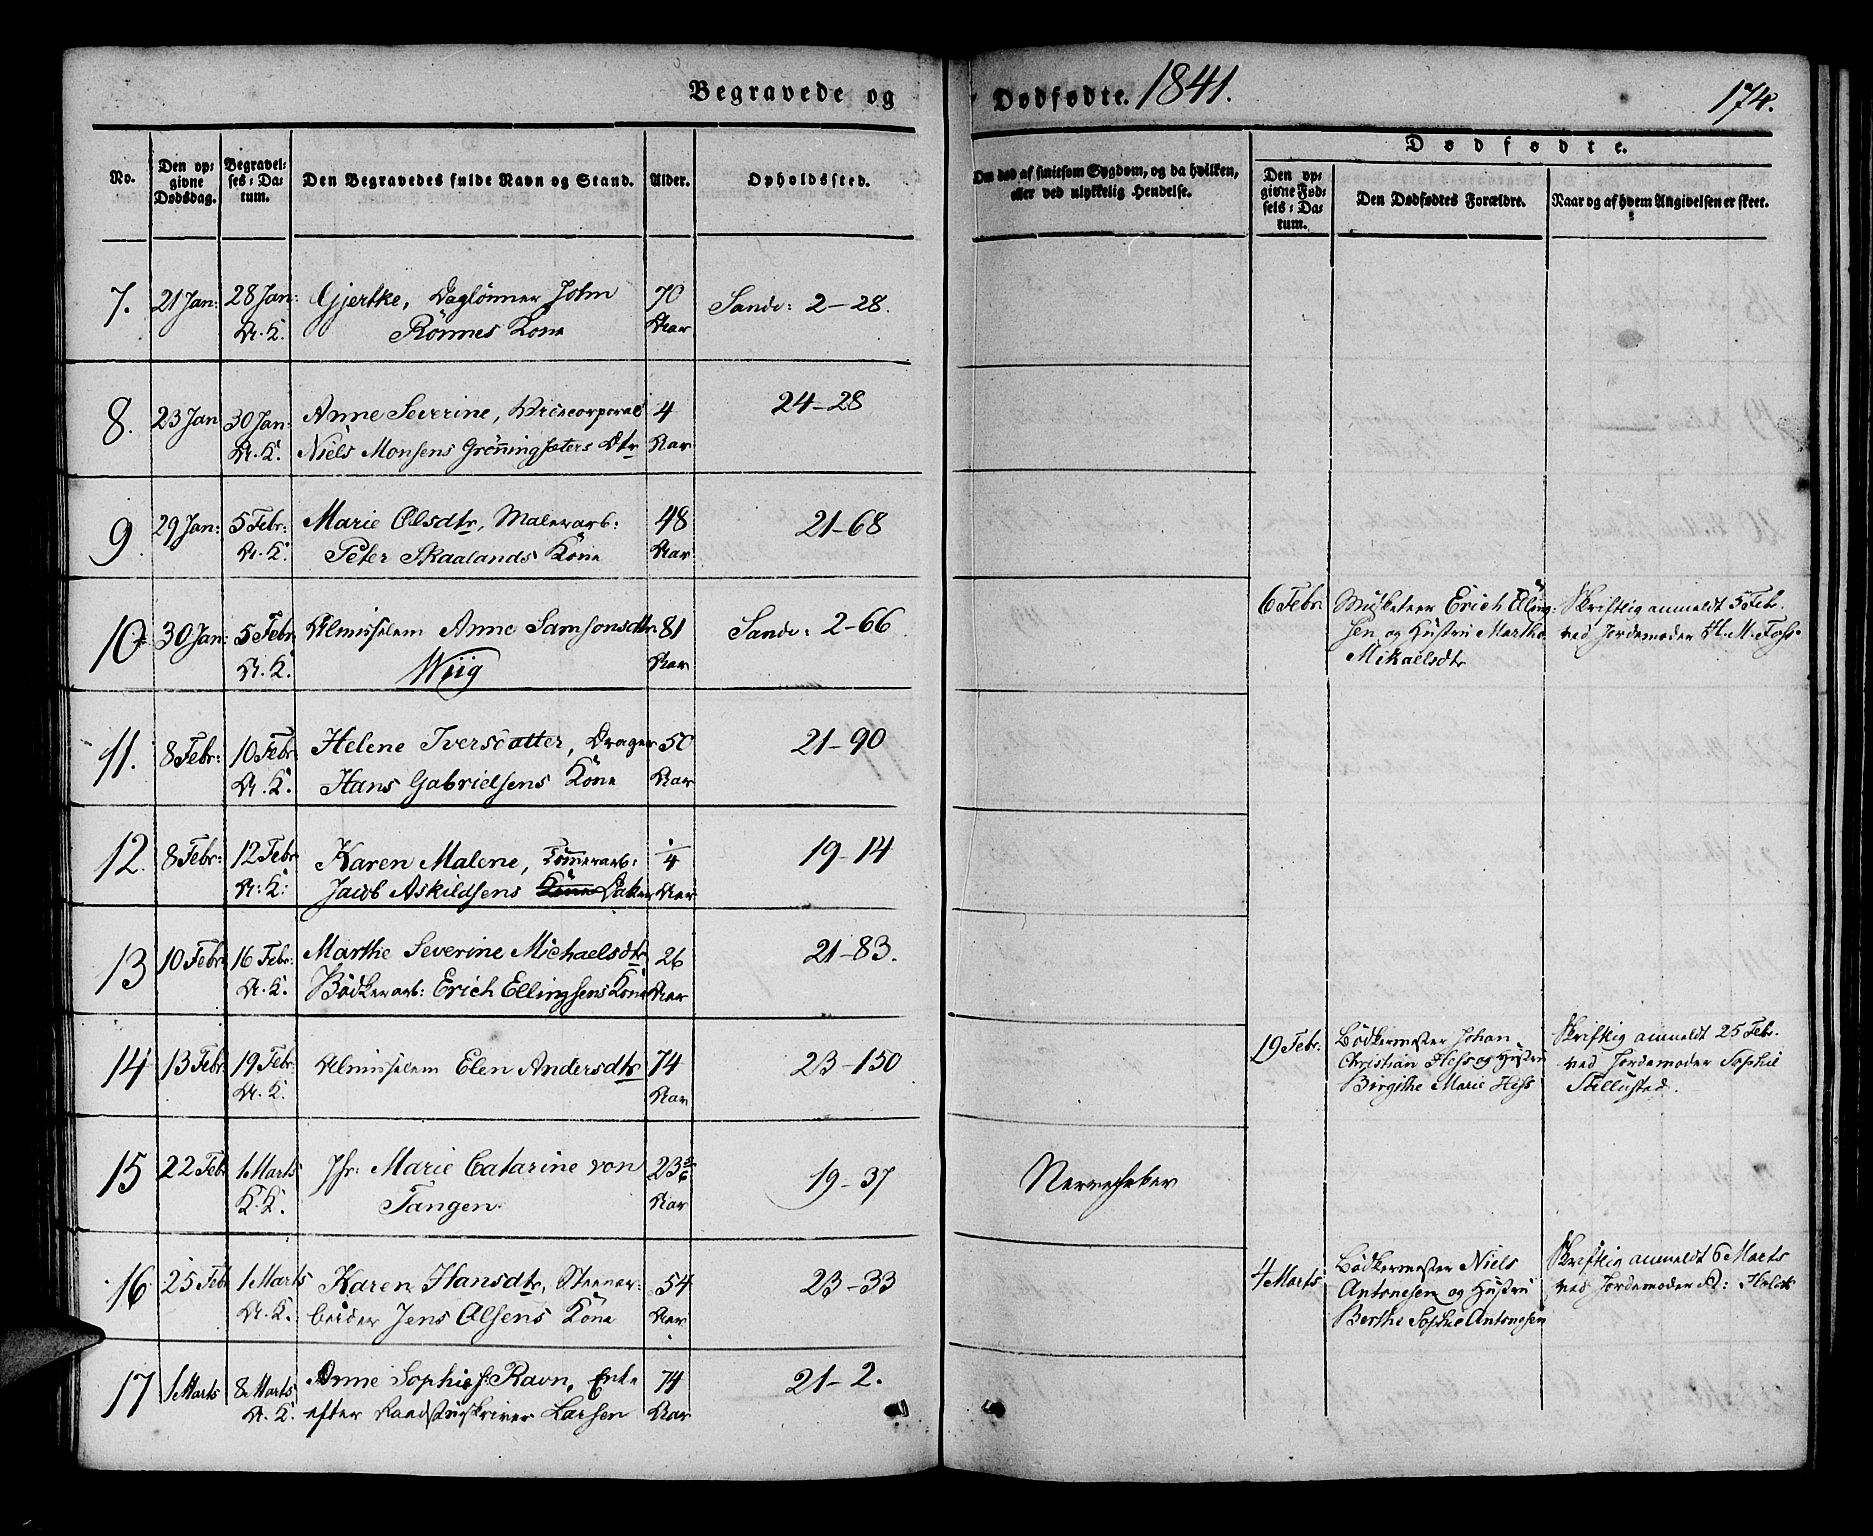 Begravede og Dødfødte. 1841. 174.
No.
Den opgivne Dødsdag.
Begravelses-Datum.
Den Begravedes fulde Navn og Stand.
Alder.
Opholdssted.
Om død af smitsom Sygdom, og da hvilken,
eller ved ulykkelig Hendelse.
Dødfødte.
Den opgivne Fødsels-Datum.
Den Dødfødtes Forældre.
Naar og af hvem Angivelsen er skeet.
7. 21 Jan: 28 Jan: Gjertke, Daglønner John 70 Sandv: 2-28.
Rönnes Kone Aar
8. 23 Jan 30 Jan: Anne Severine, 4 24-28
Niels Monsens Grönningsæters Dtr Aar
9. 29 Jan: 5 Febr: Marie Olsdtr, Malerarb: 48 21-68
Peter Skaalands Kone Aar
10. 30 Jan: 5 Febr: Almisselem Anne Samsonsdtr 81 Sandv: 2-66
Wiig Aar
6 Febr: Musketeer Erich Elling-
sen og Hustru Marthe
Mikaelsdtr
Skriftlig anmeldt 5 Febr.
ved Jordemoder H. M. Foss.
11. 8 Febr: 10 Febr: Helene Iversdatter, Drager 50 21-90
Hans Gabrielsens Kone Aar
12. 8 Febr: 12 Febr: Karen Malene, Tömmerarb: 1/4 19-14
Jacob Askildsens Kone Datter Aar
13 10 Febr: 16 Febr: Marthe Severine Michaelsdtr 26 21-83.
Bödkerarb: Erich Ellingsens Kone Aar
14 13 Febr: 19 Febr: Almisselem Elen Andersdtr 74 23-150
Aar
19 Febr: Bödkermester Johan
Christian Hess og Hustru
Birgithe Marie Hess
Skriftlig anmeldt 25 Febr.
ved Jordemoder Sophie
15 22 Febr 1 Marts Jfr: Marie Catarine von 23 5/6 19-37 Nervefeber
K. K. Tangen. Aar
16 25 Febr 1 Marts Karen Hansdtr, Steenar- 54 23-33
beider Jens Olsens Kone Aar
4 Marts Bödkermester Niels
Antonesen og Hustru
Berthe Sophie Antonesen
Skriftlig anmeldt 6 Marts
ved Jordemoder A: Holck
17 1 Marts 8 Marts Anne Sophie f: Ravn, Enke 74 21-2.
efter Raadstueskriver Larsen Aar